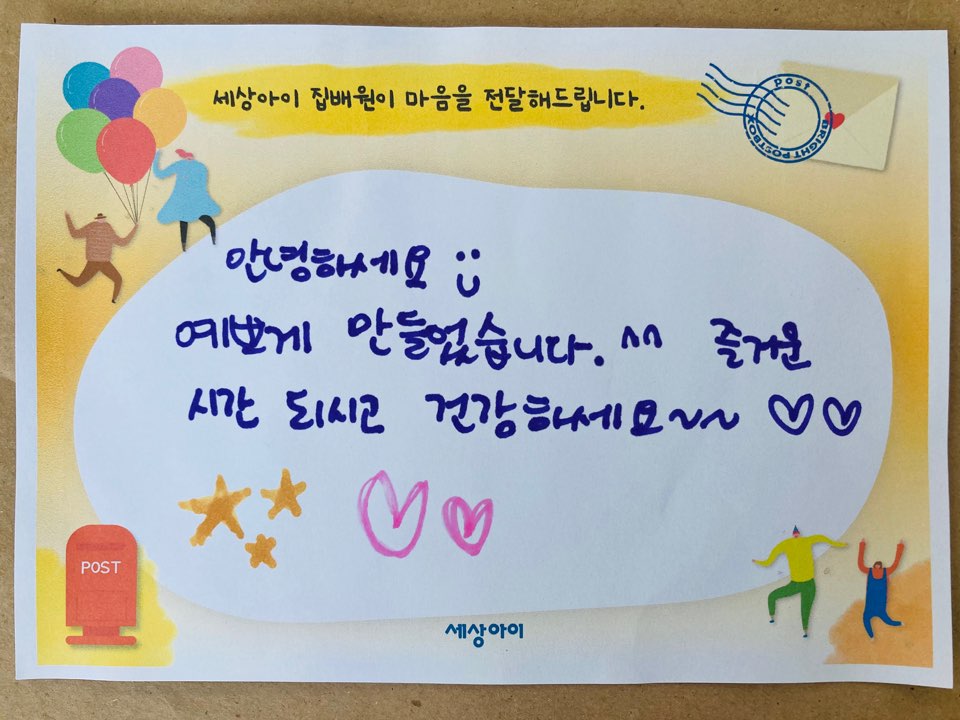 세상아이 집배원이 마음을 전달해드립니다.
post
BRIGHT POSTBOX
안녕하세요
예쁘게 만들었습니다. ^^ 즐거운
시간 되시고 건강하세요~~ ♡♡
POST
세상아이